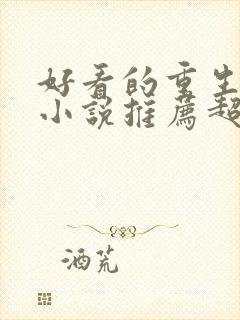 好看的重生
小说推荐超
酒荒